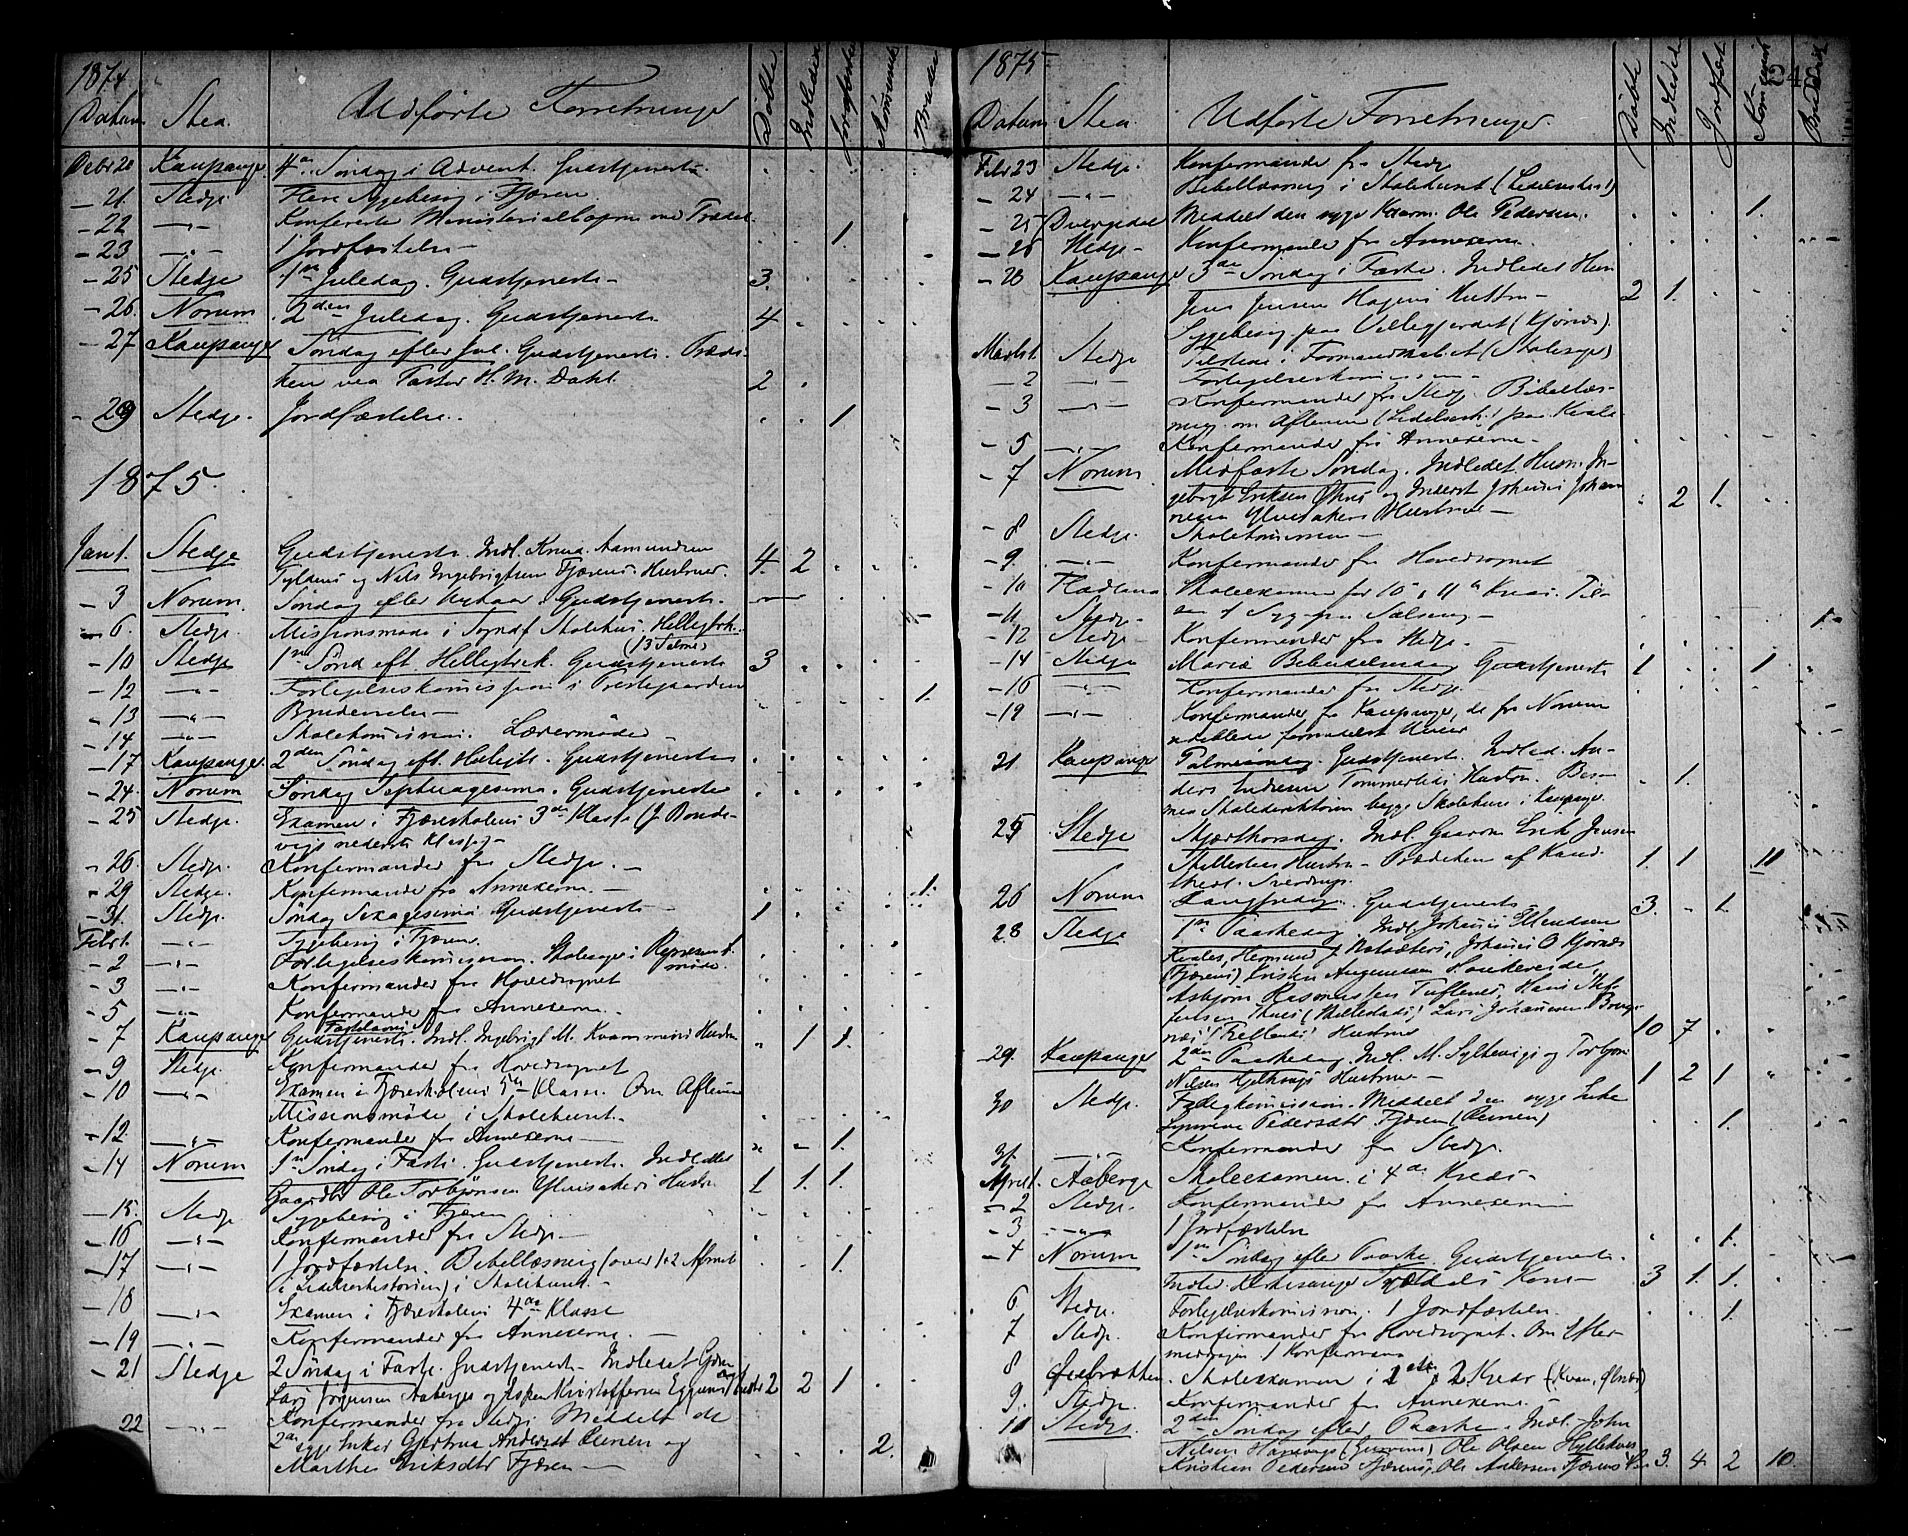 1874
Datum Sted. Udførte Forretninger Døbte Indledede Jordfæstede Kommunic. Brudev.
Decbr 20 Kaupanger 4de Søndag i Advent. Gudstjeneste.
- 21. Stedje. Sygebesøg i Fjæren
- 22 -"- Konfererede Ministerialbogen
- 23 -"- 1 Jordfæstelse - 1.
- 25 Stedje 1ste Juledag. Gudstjeneste - 3.
- 26. Norum 2den Juledag. Gudstjeneste 4
- 27 Kaupanger Søndag efter Jul. Gudstjeneste. Prædi-
ken ved Pastor H. M. Dahl. 2
- 29 Stedje. Jordfæstelse. 1
1875.
Jan 1. Stedje Gudstjeneste. Indl. Knud Aamundsen
Tyldens og Nils Ingebrigtsen Fjærens Hustruer. 4. 2
- 3 Norum. Søndag efter Nytaar. Gudstjeneste.
- 6. Stedje. Missionsmøde i Sogndl Skolehus. Helligtrk.
- 10 Stedje 1ste Sønd. eft. Helligtrek. Gudstjeneste 3
- 12 -"- Forligelseskomission i Prestegaarden
- 13 -"- Brudevielse - 1.
- 14 -"- Skolekomission. Lærermøde -
- 17 Kaupanger. 2den Søndag eft. Helligt. Gudstjeneste
- 24. Norum Søndag Septuagesima. Gudstjeneste
- 25 Stedje. Examen i Fjæreskolens 3die Klasse (J. Bonde-
vigs nederste Klasse)
- 26. Stedje. Konfermander fra Stedje. -
- 29 Stedje. Konfermander fra Annexerne. - 1.
- 31. Stedje. Søndag Sexagesima Gudstjeneste 1
Febr 1. -"- Sygebesøg i Fjæren.
- 2 -"- Forligelseskomission. Skolesager i Represent.
møde
- 3 -"- Konfermander fra Hovedsognet
- 5 -"- Konfermander fra Annexerne.
- 7 Kaupanger Fastelavns
Gudstjeneste. Indl. Ingebrigt M. Kvammens Hustru 1 1.
- 9 Stedje. Konfermander fra Hovedsognet
- 10 -"- Examen i Fjæreskolens 5te Klasse. Om Aftenen
Missionsmøde i Skolehuset.
- 12. -"- Konfermander fra Annexerne 1.
- 14 Norum 1ste Søndag i Faste. Gudstjeneste. Indledet
Gaardbr Ole Torbjørnsen Ylvisakers Hustru 1 1. 1.
- 15. Stedje Sygebesøg i Fjæren
- 16 -"- Konfermander fra Stedje -
- 17 -"- 1 Jordfæstelse. Bibellæsning (over 1+2 Afsnit 1.
i Lidelseshistorien) i Skolehuset. -
- 18 -"- Examen i Fjæreskolens 4de Klasse
- 19 -"- Konfermander fra Annexerne. -
- 21 Stedje 2 Søndag i Faste. Gudstjeneste. Indledet
Lars Jørgensen Aaberges og Aspen Kristoffersen Eggums Hustr 2 2 1
22 -"- Konfermander fra Stedje. Meddelt de
2de syge Enker Gjertrud Andersdt og
Marthe Eriksdtr Fjæren - 2.
1875
Datum Sted Udførte Forretninger. Døbte Indledede Jordfæst Kommunic Brudevi 248
Febr 23 Stedje. Konfermander fra Stedje
- 24 -"- Bibellæsning i Skolehuset (Lidelseshist)
- 25 Dvergsdal Meddelt den syge Kaarm. Ole Pedersen. 1.
- 26 Stedje - Konfermander fra Annexerne.
- 28 Kaupanger 3die Søndag i Faste. Indledet Husm
Jens Jensen Hagens Hustru - 2 1.
Sygebesøg paa Vellegjerdet (Kjørnæs).
Marts 1. Stedje Tilstede i Formandskabet (Skolesager)
- 2 -"- Forligelseskomission -
- 3 -"- Konfermander fra Stedje. Bibellæs-
ning om Aftenen (Lidelsesh.) paa Kvale
- 5 -"- Konfermander fra Annexerne -
- 7 Norum Midfaste Søndag. Indledet Husm. In-
gebrigt Eriksen og Inderst Johannes Johan- 2 1.
nesen Ylvisakers Hustruer -
- 8 Stedje. Skolekomission -
- 9. -"- Konfermander fra Hovedsognet
- 10 Fladland Skoleexamen for 10 & 11te Kreds.
- 11 Stedje.
- 12 Stedje Konfermander fra Stedje. -
- 14 Stedje Mariæ Bebudelsesdag Gudstjeneste 1 1
- 16 -"- Konfermander fra Stedje -
- 19 -"- Konfermander fra Kaupanger, de fra Norum
udebleve
21 Kaupanger Palmesøndag. Gudstjeneste. Indled. An-
ders Endresen Timmerlids Hustru. 1.
25 Stedje Skjærthorsdag. Indl. Gaardm Erik Jensen
Skjelsteds Hustru - Prædiken af Kand. 1. 1 11
theol. Sverdrup.
26 Norum Langfredag. Gudstjeneste 3. - 1
28 Stedje 1ste Paaskedag. Indl. Johannes
Kvales, Hermund J. Johannes O Kjørnæs
(Fjæren)
Asbjørn Rasmussen Tuftenes, Hans
Lars Johannesen
Hustruer 10 7
- 29. Kaupanger 2den Paaskedag. Indl. M. Sylkevigs og Torbjørn
Nilsen Hustruer - 1 2 1
30 Stedje. Forligskomission. Meddelt den syge Enke
Pedersdtr Fjæren 1.
31. Konfermander fra Stedje.
April 1. Aaberge Skoleexamen i 4de Kreds -
- 2 Stedje. Konfermander fra Annexerne
- 3 -"- 1 Jordfæstelse 1.
- 4 Norum 1ste Søndag efter Paaske Gudstjeneste.
Indl. Kirkesanger Kone - 3 1. 1.
6 Stedje. Forligelseskomission. 1 Jordfæstelse. 1
7 Stedje. Konfermander fra Hovedsognet. Om Efter-
middagen 1 Konfermand
8 Skoleexamen i 1ste & 2. Kreds
9. Stedje. Konfermander fra Annexerne. -
11 Stedje. 2den Søndag efter Paaske. Indl. John
Nilsen Ole Olsen
Kristian Pedersen Fjærens, Ole Andersen Fjærens 3. 4. 2 10.